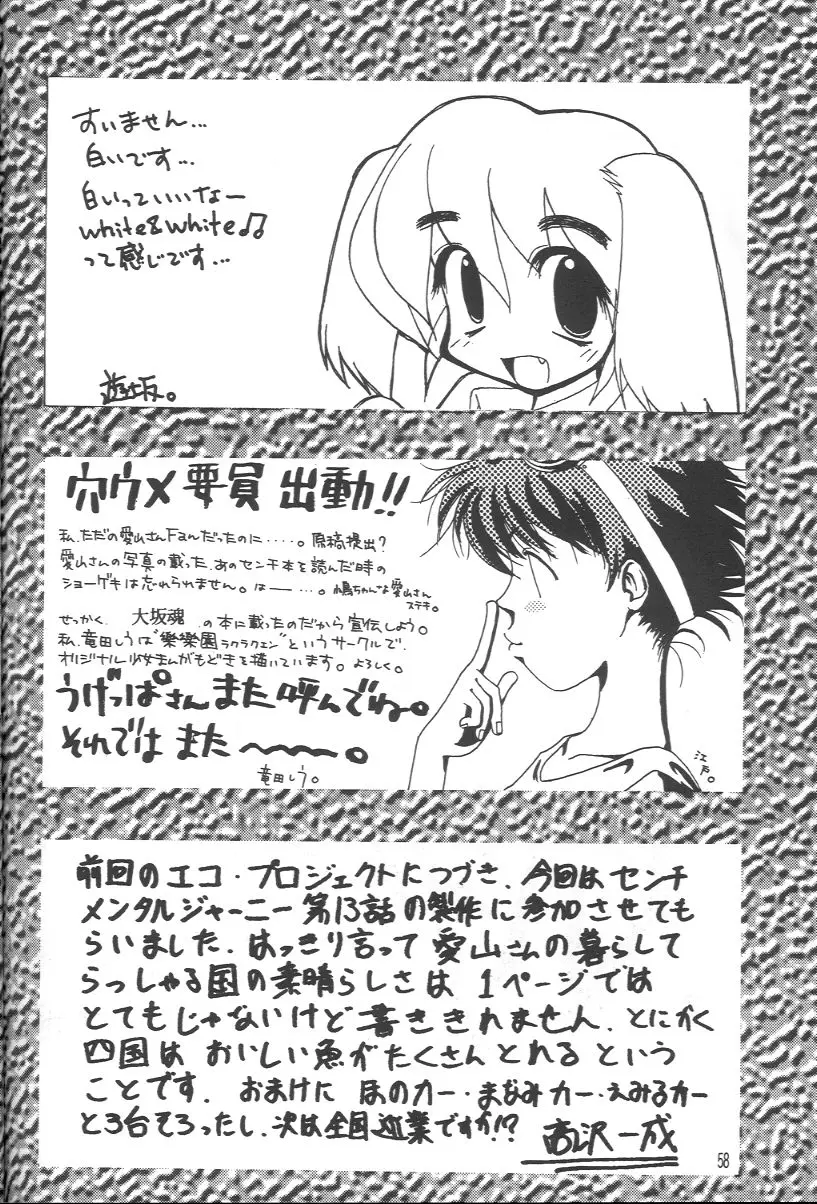 すいません…
白いです…
白いっていいなー
white&white♫
って感じです…
遊坂。
穴ウメ要員 出動!!
私、ただの愛山さんFanだったのに……。原稿提出?
愛山さんの写真の載った、あのセンチ本を読んだ時の
ショーゲキは忘れられません。はー…。嶋ちゃんな愛山さん
ステキ。
せっかく 大坂魂 の本に載ったのだから宣伝しよう。
私、竜田しうは"樂樂園ラクラクエン"というサークルで、
オリジナル少女まんがもどきを描いています。よろしく。
うげっぱさん また 呼んでね。
それでは また 〜〜〜。
竜田しう。
江戸。
前回のエコ・プロジェクトにつづき、今回はセンチ
メンタルジャーニー第13話の製作に参加させても
らいました。はっきり言って愛山さんの暮らして
らっしゃる国の素晴らしさは1ページでは
とてもじゃないけど書ききれません。とにかく
四国は おいしい魚がたくさんとれる という
ことです。 おまけに ほのカー・まなみカー・えみるカー
と3台そろったし、次は全国巡業ですか!?
高沢一成
58